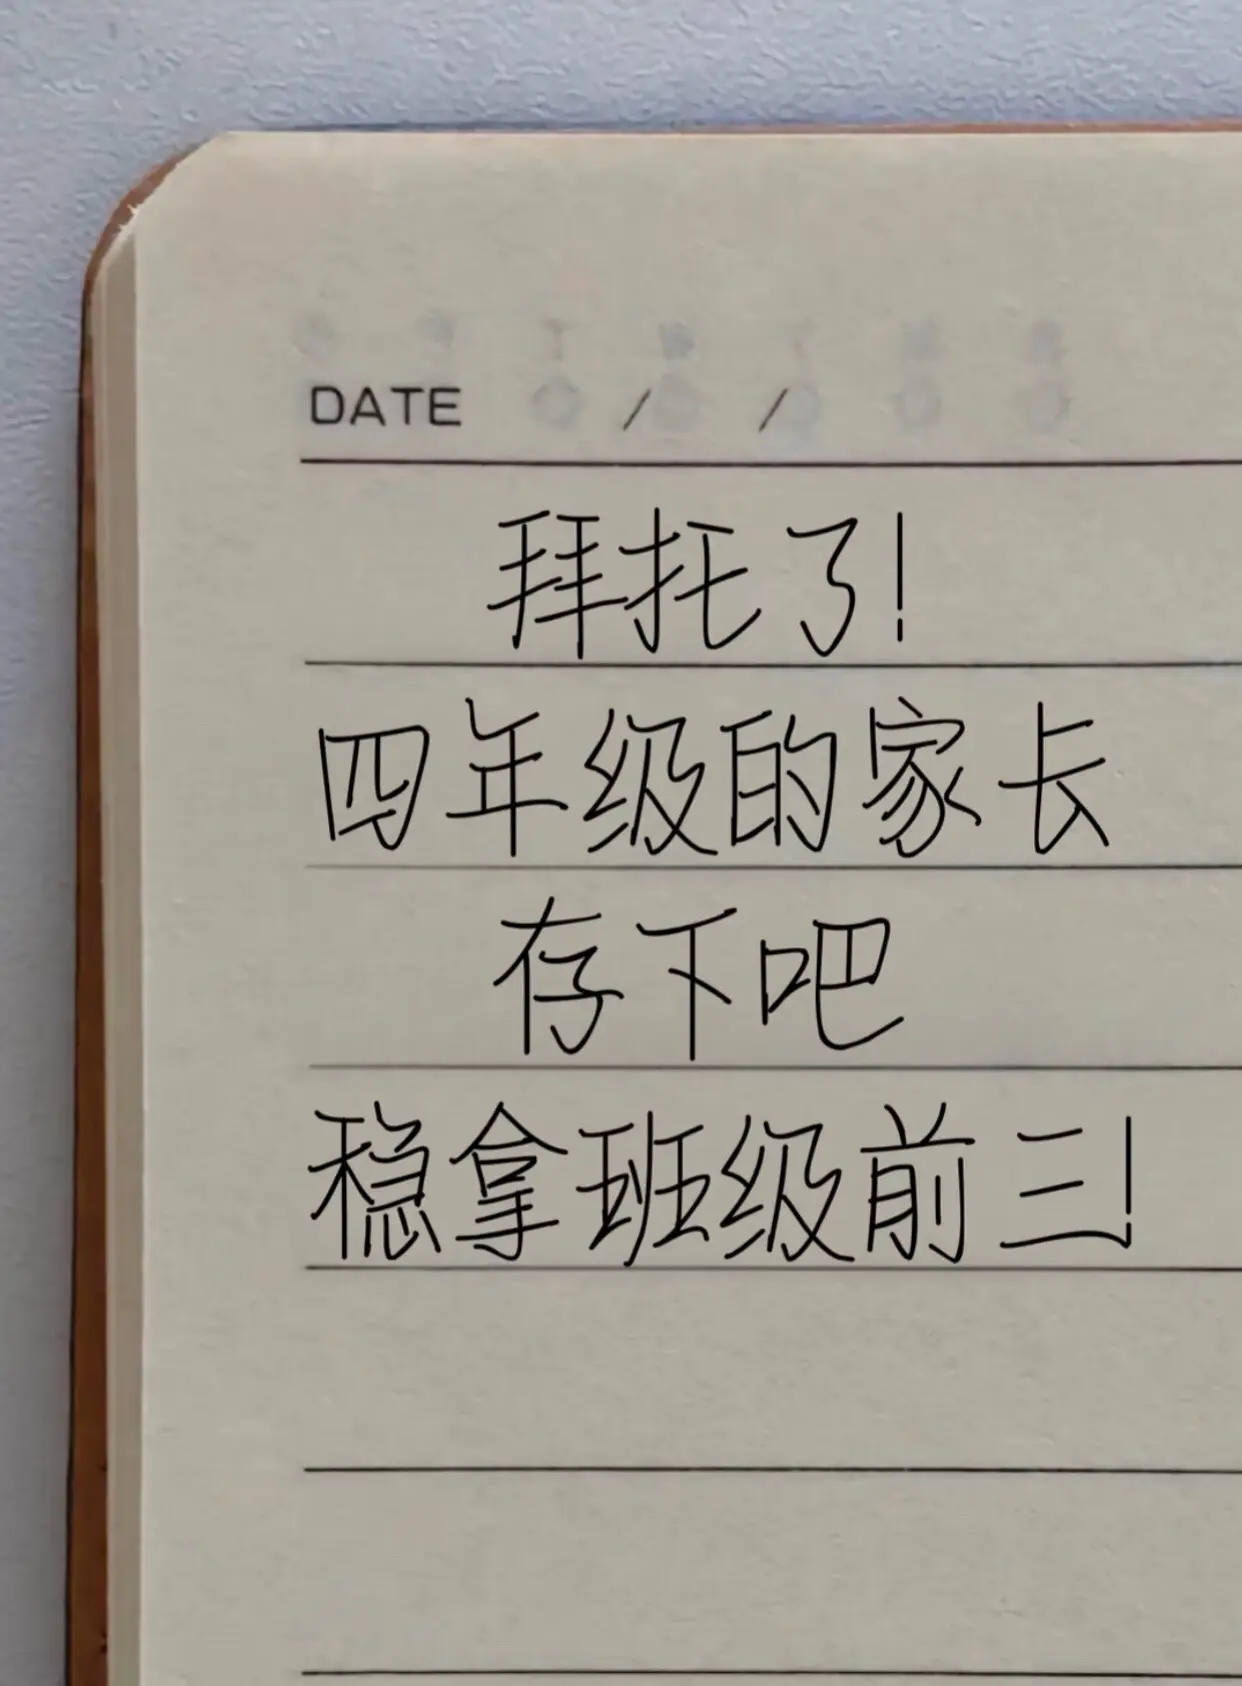 DATE / /
拜托了!
四年级的家长
存下吧
稳拿班级前三!